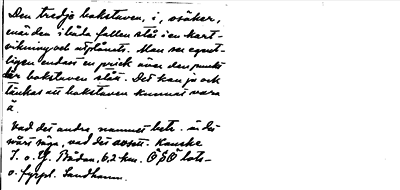 Den tredje bokstaven, i, osäker,
emedan i båda fallen står i en kart-
vikning och utplånats. Man ser egent-
ligen endast en prick över den punkt
där bokstaven stått. Det kan ju och
tänkas att bokstaven kunnat vara
å.
Vad det andra namnet betr. är det
svårt säga, vad det avsett. Kanske
I. o. Y. Bådan, 6,2 km. Ö S Ö lots-
o. fyrpl. Sandhamn.